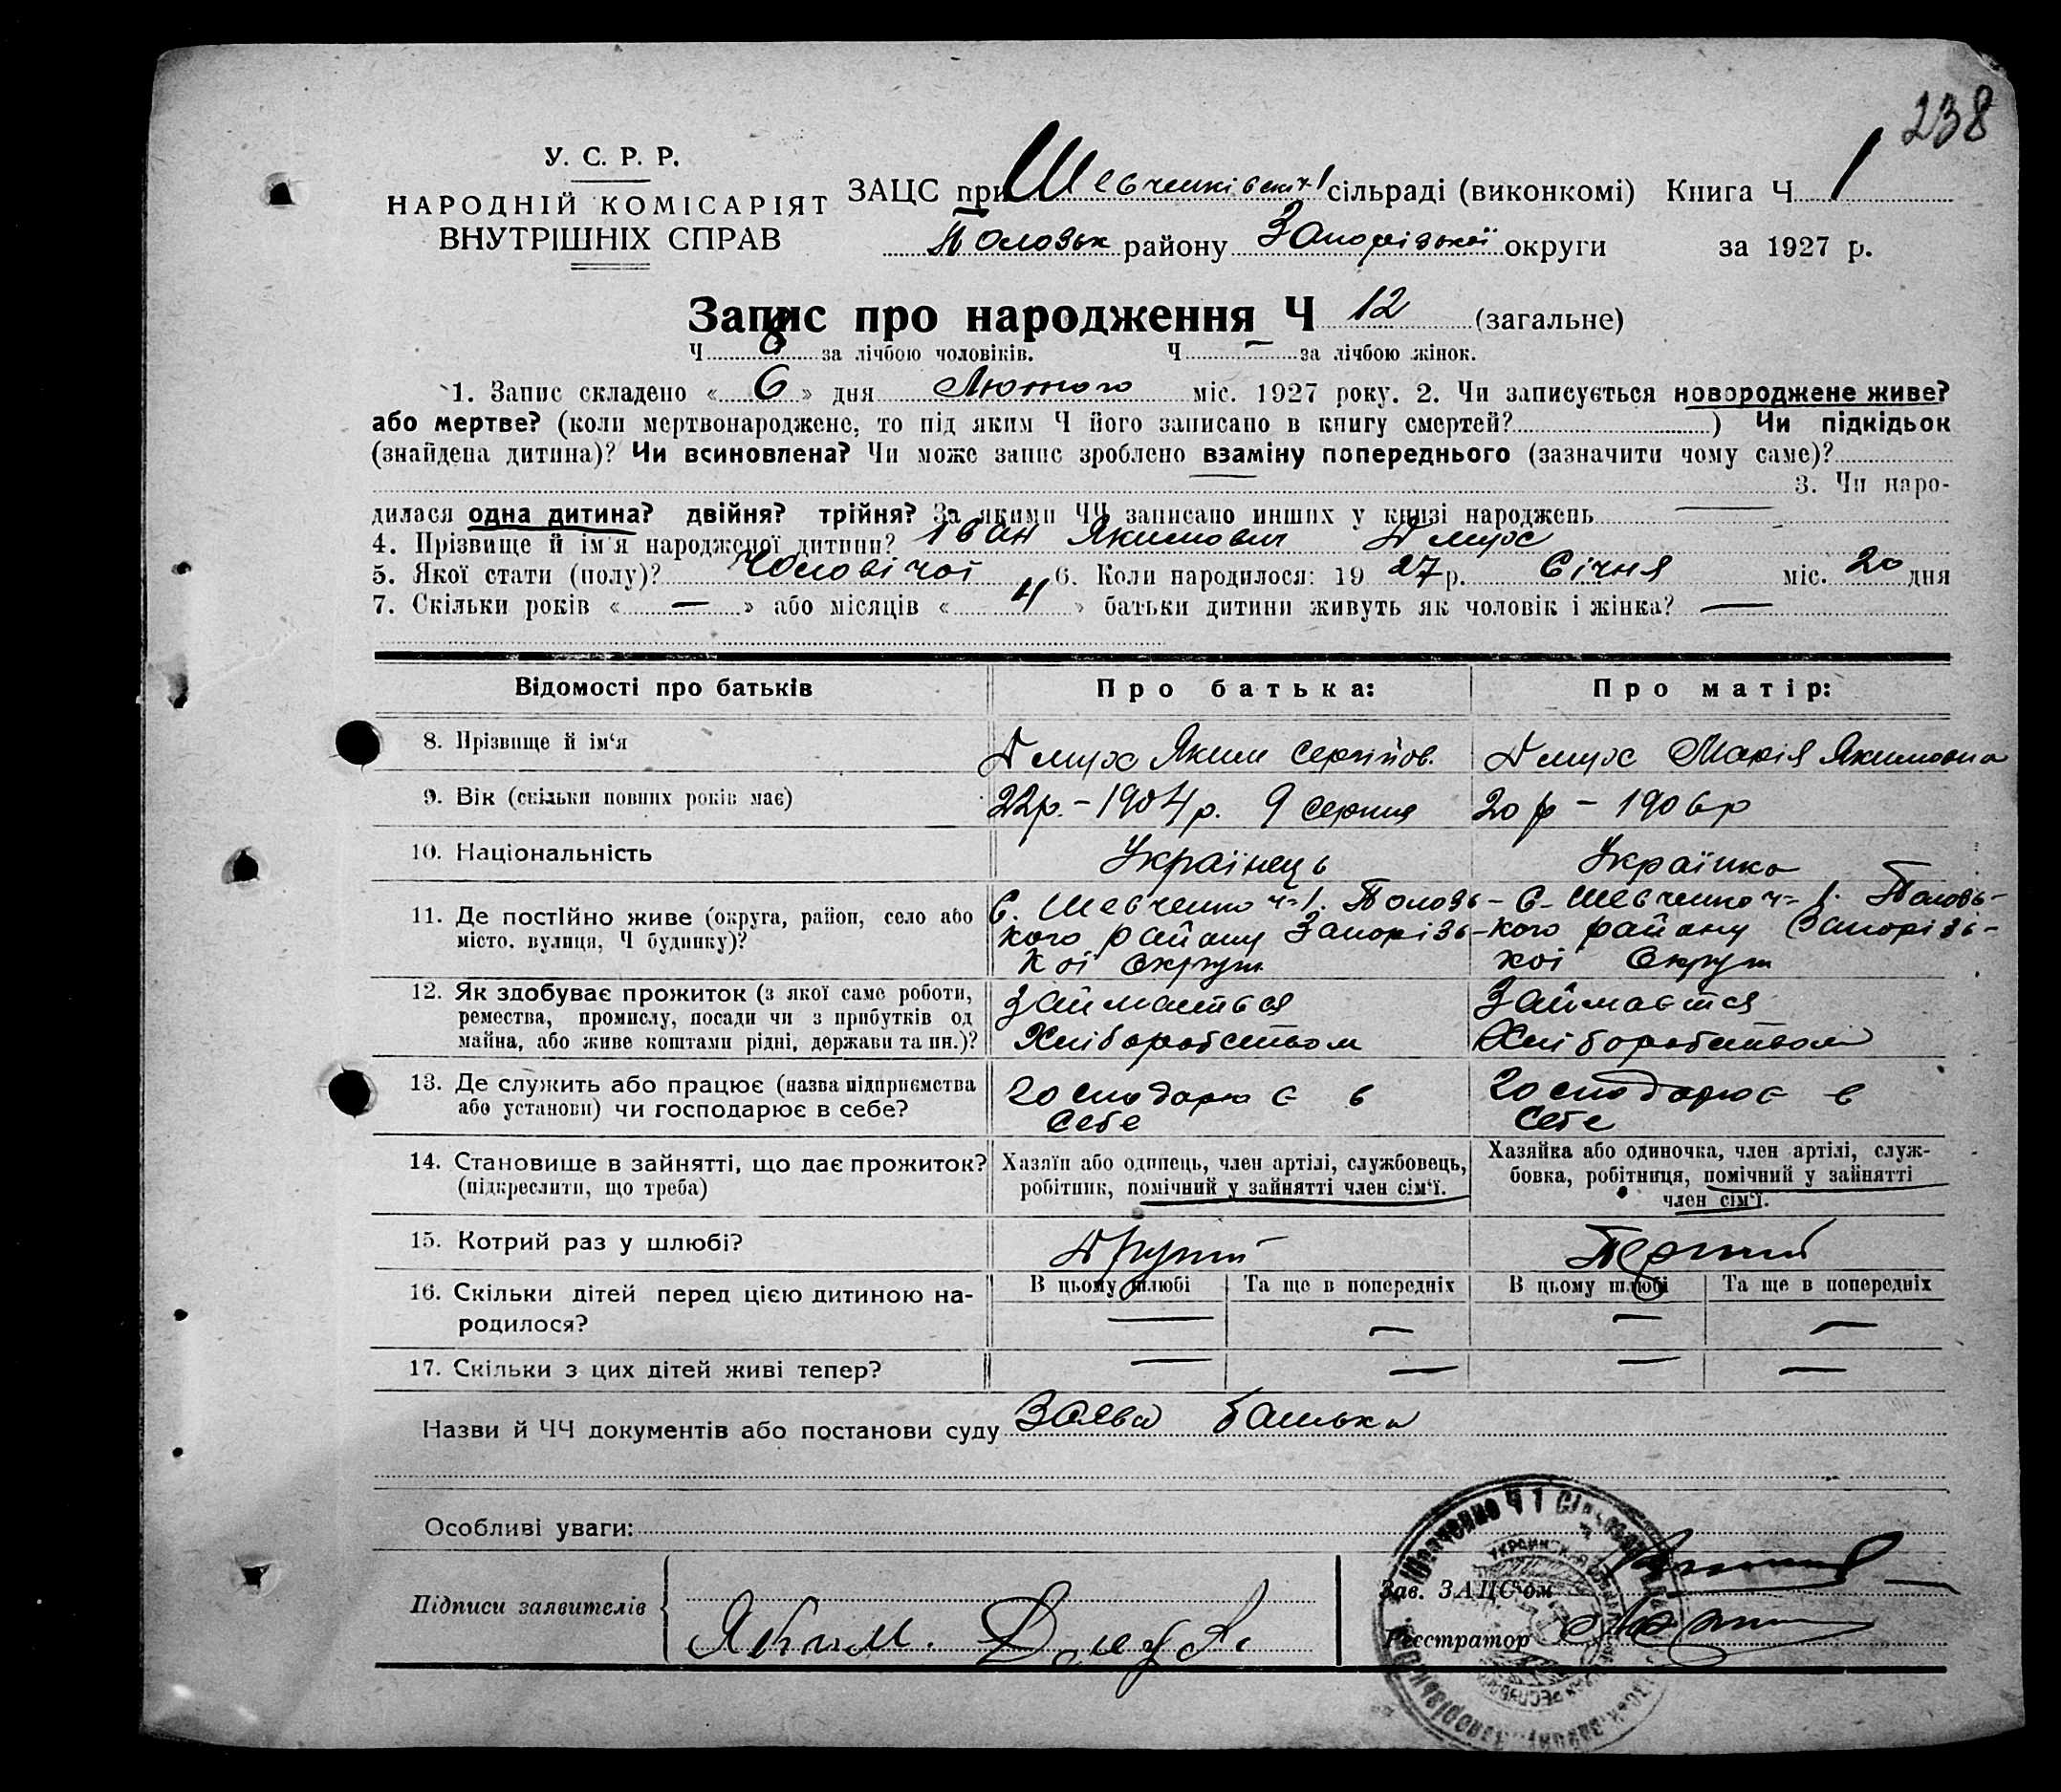 238
У. С. Р. Р.
НАРОДНІЙ КОМІСАРІЯТ
ВНУТРІШНІХ СПРАВ
ЗАЦС при Шевченківськ. ч 1 сільраді (виконкомі) Книга Ч. 1
Пологськ району Запорізької округи за 1927 р.
Запис про народження Ч 12 (загальне)
Ч 8 за лічбою чоловіків. Ч — за лічбою жінок.
1. Запис складено « 6 » дня Лютого міс. 1927 року. 2. Чи записується новороджене живе?
або мертве? (коли мертвонароджене, то під яким Ч його записано в книгу смертей? ) Чи підкідьок
(знайдена дитина)? Чи всиновлена? Чи може запис зроблено взаміну попереднього (зазначити чому саме)?
3. Чи наро-
дилася одна дитина? двійня? трійня? За якими ЧЧ записано инших у книзі народжень —
4. Прізвище й ім'я народженої дитини? Іван Якимович Дмух
5. Якої статі (полу)? Чоловічої 6. Коли народилося: 19 27 р. Січня міс. 20 дня
7. Скільки років « — » або місяців « 11 » батьки дитини живуть як чоловік і жінка? —
Відомості про батьків Про батька: Про матір:
8. Прізвище й ім'я Дмух Яким Сергійов. Дмух Марія Якимовна
9. Вік (скільки повних років має) 22р. – 1904р. 9 серпня 20р – 1906р
10. Національність Українець Українка
11. Де постійно живе (округа, район, село або місто, вулиця, Ч будинку)?
С. Шевченко ч-1. Пологсь-
кого району Запорізь-
кої Округи
С. Шевченко ч- 1. Пологсь-
кого району Запорізь-
кої Округи
12. Як здобуває прожиток (з якої саме роботи,
ремества, промислу, посади чи з прибутків од
майна, або живе коштами рідні, держави та ин.)?
Займається
Хліборобством
Займається
Хліборобством
13. Де служить або працює (назва підприємства
або установи) чи господарює в себе?
Господарює в
себе
Господарює в
себе
14. Становище в зайнятті, що дає прожиток?
(підкреслити, що треба)
Хазяїн або одинець, член артілі, службовець,
робітник, помічний у зайнятті член сім'ї.
Хазяйка або одиночка, член артілі, служ-
бовка, робітниця, помічний у зайнятті
член сім'ї.
15. Котрий раз у шлюбі? Другий Перший
16. Скільки дітей перед цією дитиною на-
родилося?
В цьому шлюбі Та ще в попередніх В цьому шлюбі Та ще в попередніх
— — — —
17. Скільки з цих дітей живі тепер? — — — —
Назви й ЧЧ документів або постанови суду Заява батька
Особливі уваги:
Підписи заявителів Яким. Дмух.
Зав. ЗАЦС'ом
Реєстратор
Шевченко Ч 1